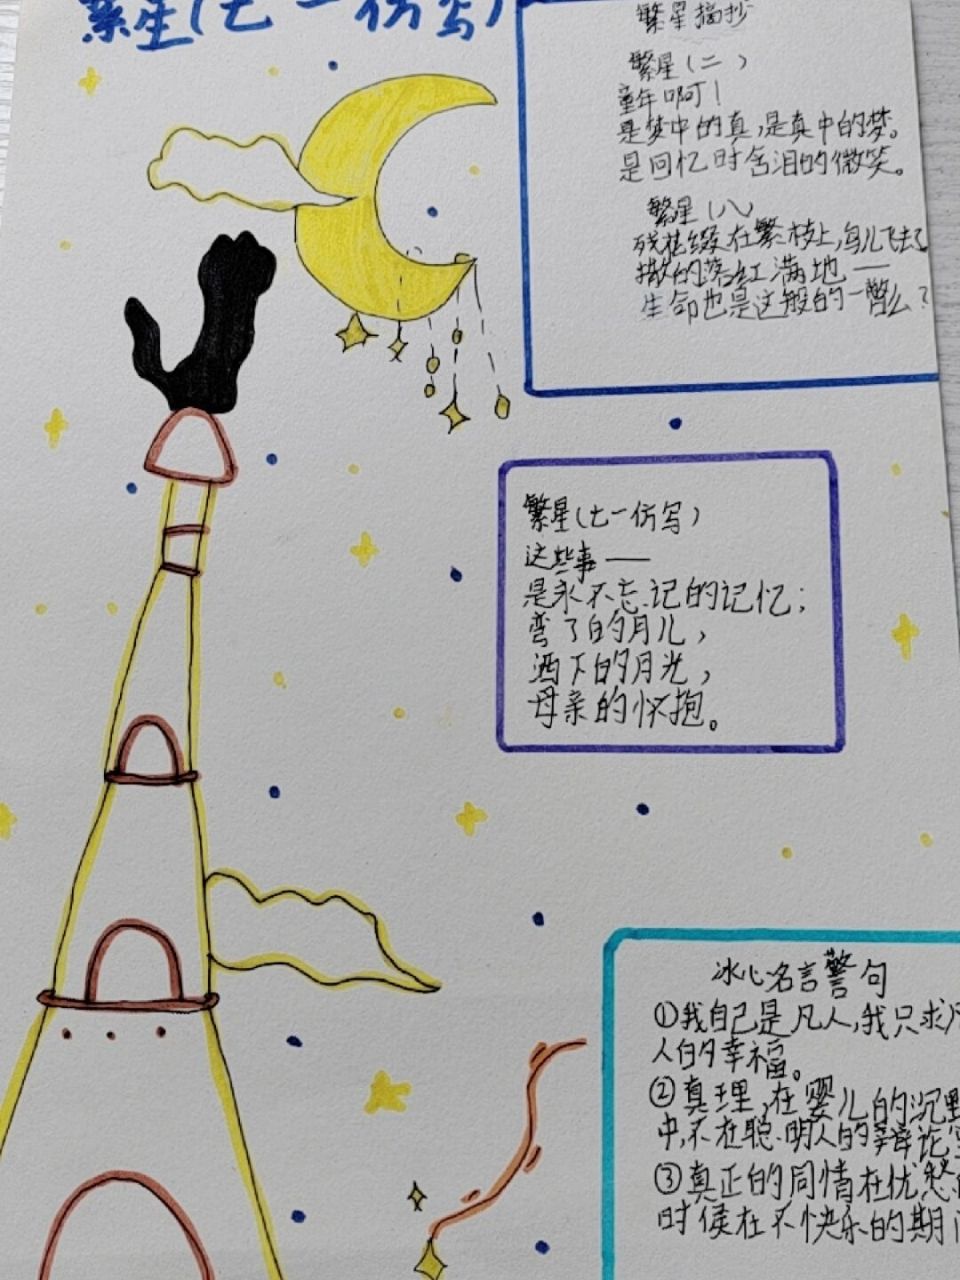 繁星(七一仿写)
繁星摘抄
繁星(二)
童年啊!
是梦中的真,是真中的梦。
是回忆时含泪的微笑。
繁星(八)
残花缀在繁枝上,鸟儿飞去了
撒的落红满地——
生命也是这般的一瞥么?
繁星(七一仿写)
这些事——
是永不忘记的记忆;
弯了的月儿,
洒下的月光,
母亲的怀抱。
冰心名言警句
①我自己是凡人,我只求
人的幸福。
②真理,在婴儿的沉默
中,不在聪明人的辩论
③真正的同情在忧愁的
时侯在不快乐的期